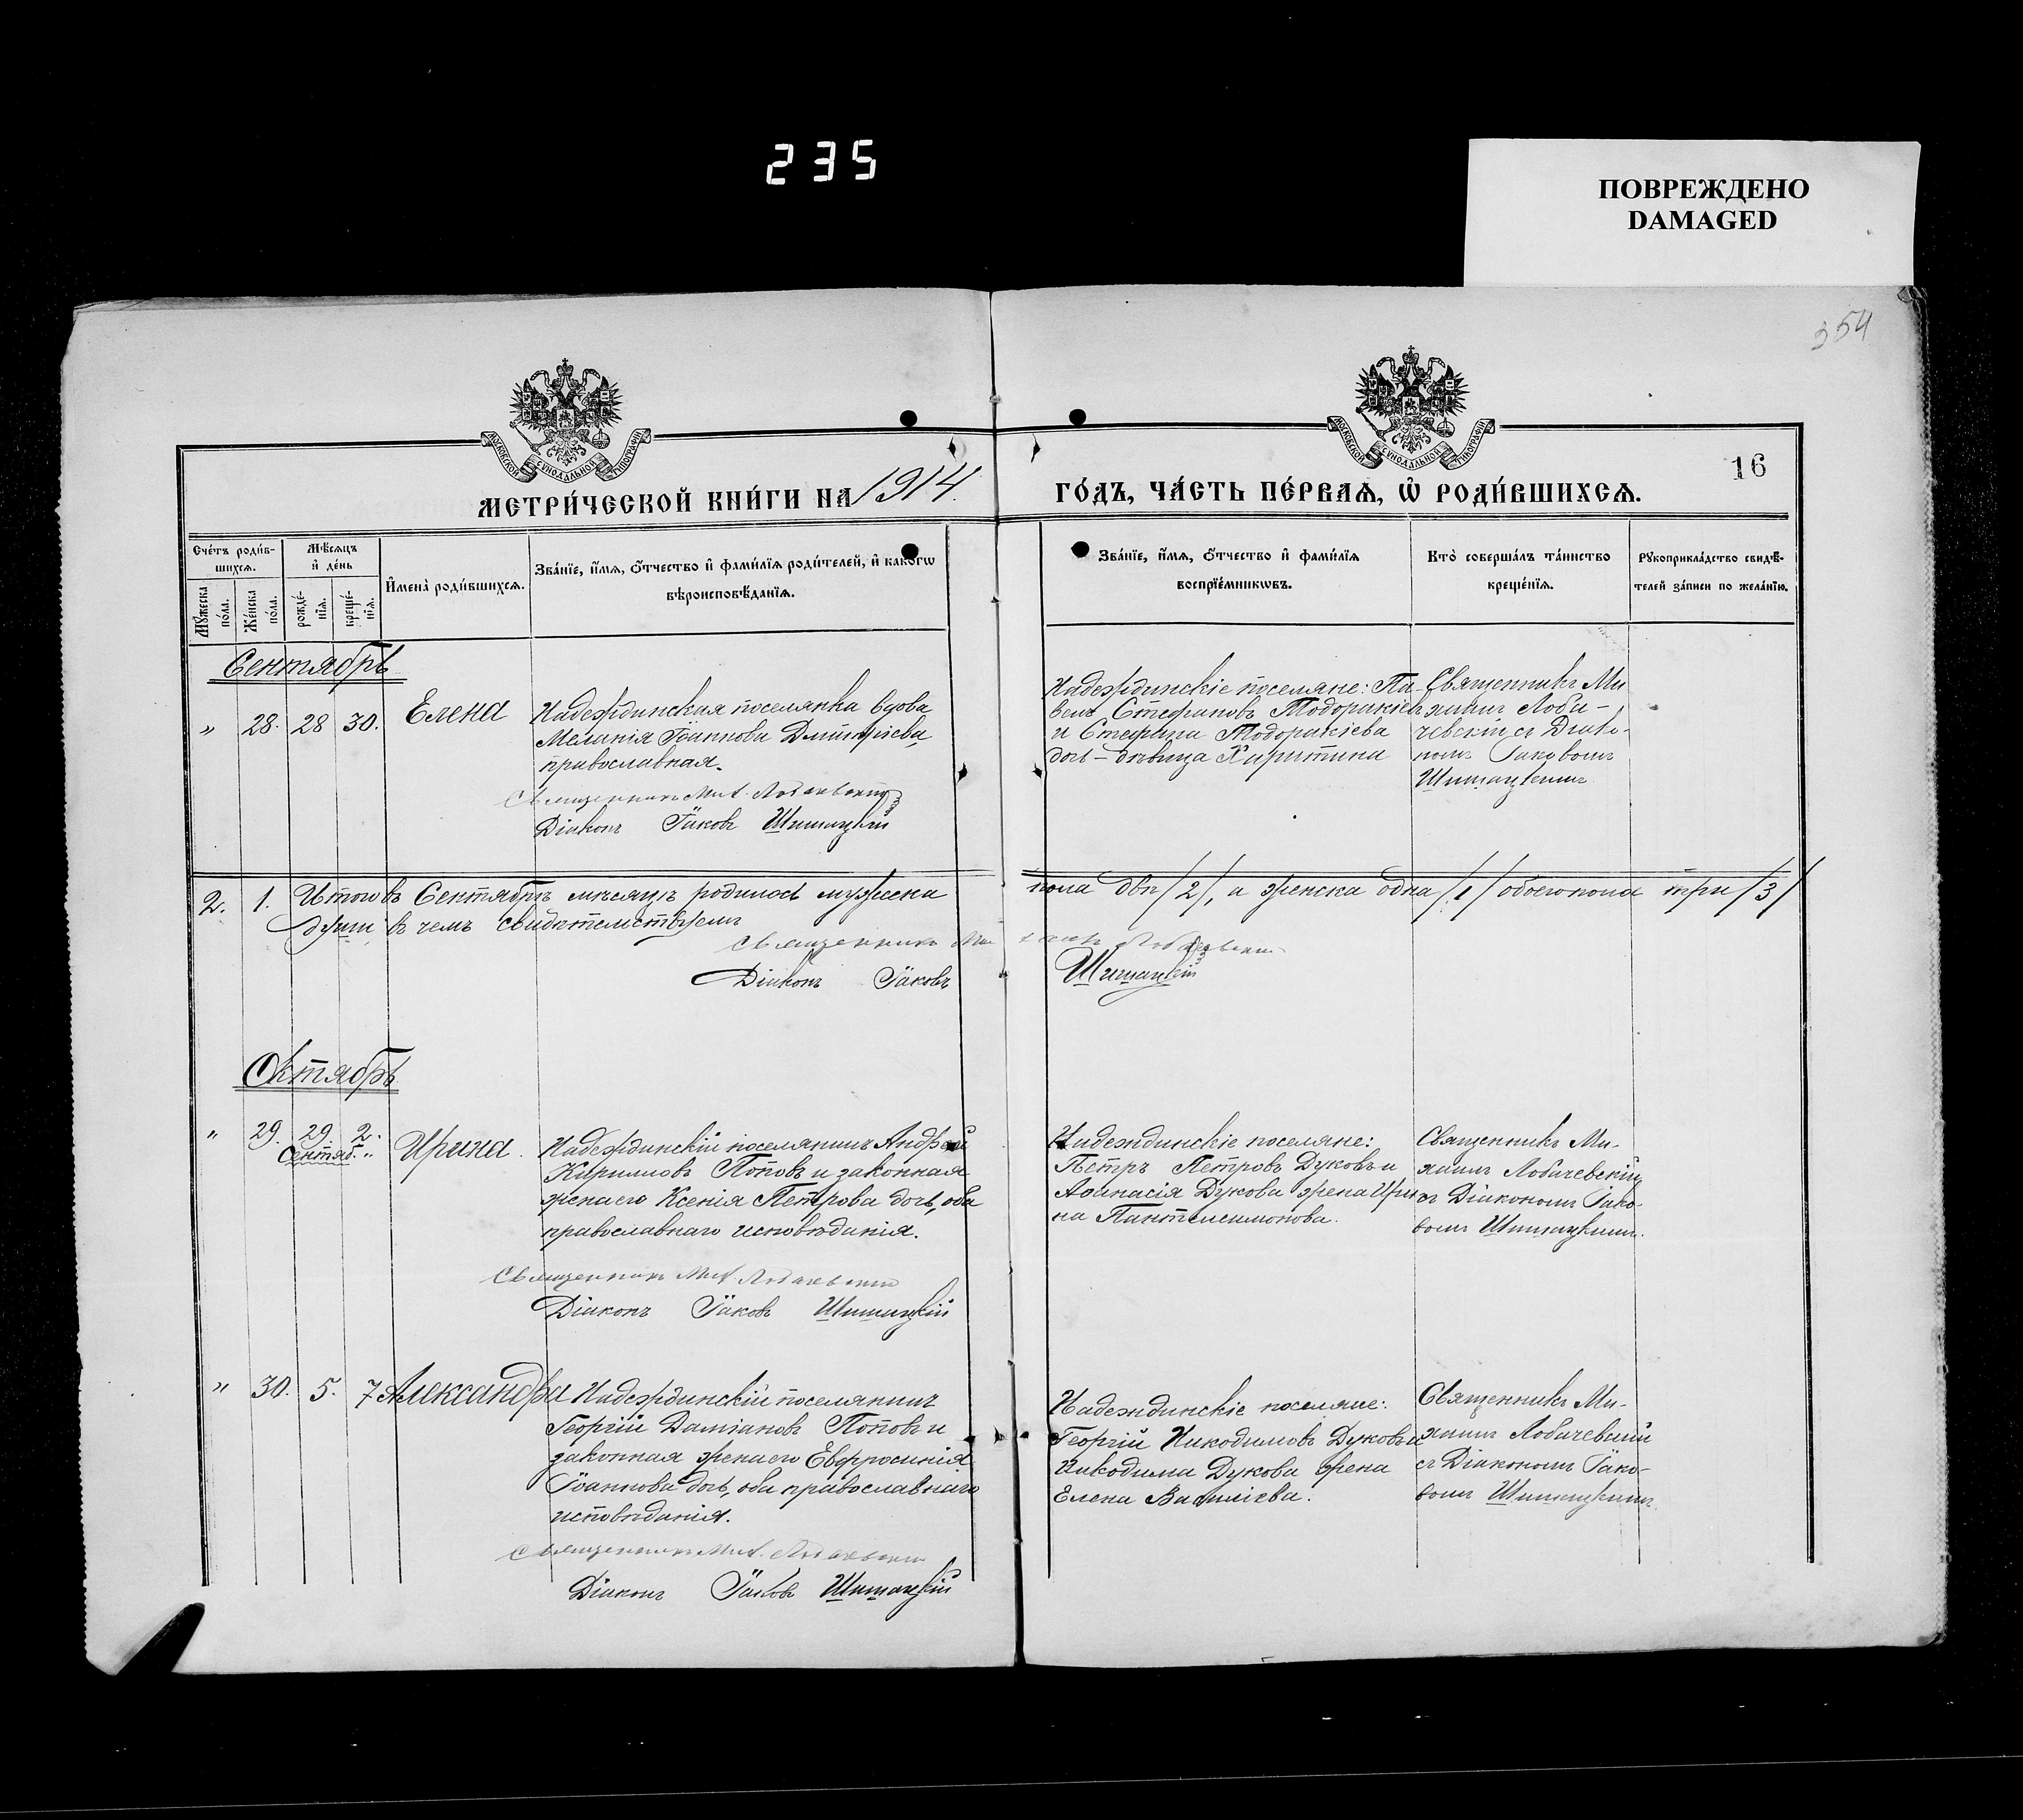 235
ПОВРЕЖДЕНО
DAMAGED
354
16
МОСКОВСКОЙ СѴНОДАЛЬНОЙ ТИПОГРАФІИ
МОСКОВСКОЙ СѴНОДАЛЬНОЙ ТИПОГРАФІИ
МЕТРИ́ЧЕСКОЙ КНИ́ГИ НА 1914. ГО́ДЪ, ЧА́СТЬ ПЕ́РВАѦ, Ѽ РОДИ́ВШИХСѦ.
Сче́тъ роди́в-
шихсѧ.
Мꙋ́жеска по́ла.
Же́нска по́ла.
Мѣ́сѧцъ и҆ де́нь
рожде́-нїѧ.
креще́-нїѧ.
И҆мена̀ роди́вшихсѧ.
Зва́нїе, и҆́мѧ, ѻ҆́тчество и҆ фами́лїѧ роди́телей, и҆ како́гѡ
вѣроисповѣ́данїѧ.
Зва́нїе, и҆́мѧ, ѻ҆́тчество и҆ фами́лїѧ
воспрїе́мникѡвъ.
Кто̀ соверша́лъ та́инство
креще́нїѧ.
Рꙋкоприкла́дство свидѣ́-
телей за́писи по жела́нїю.
Сентябрь
" 28. 28 30. Елена
Надеждинская поселянка вдова
Меланія Іоаннова Дмитріева,
православная.
Священникъ Мих. Лобачевскій
Діаконъ Іаковъ Шишацкій
Надеждинскіе поселяне: Па-
велъ Стефановъ Тодоракіев
и Стефана Тодоракіева
дочь – дѣвица Харитина
Священникъ Ми
хаилъ Лоба-
чевскій съ Діако-
номъ Іаковомъ
Шишацкимъ
2. 1. Итого въ Сентябрѣ мѣсяцѣ родилось мужеска пола двѣ /2/, а женска одна /1/ обоего пола три /3/
души въ чемъ свидѣтельствуемъ
Священникъ Михаилъ Лобачевскій
Діаконъ Іаковъ Шишацкій
Октябрь
" 29. 29. 2.
Сентяб. "
Ирина.
Надеждинскій поселянинъ Андрей
Кирилловъ Поповъ и законная
жена его Ксенія Петрова дочь, оба
православнаго исповѣданія.
Священникъ Мих Лобачевскій
Діаконъ Іаковъ Шишацкій
Надеждинскіе поселяне:
Петръ Петровъ Дуковъ и
Аѳанасія Дукова жена Ири
на Пантелеимонова.
Священникъ Ми-
хаилъ Лобачевскій
съ Діакономъ Іако-
вомъ Шишацкимъ.
" 30. 5. 7 Александра
Надеждинскій поселянинъ
Георгій Даміановъ Поповъ и
законная жена его Евфросинія
Іоаннова дочь, оба православнаго
исповѣданія.
Священникъ Мих. Лобачевскій
Діаконъ Іаковъ Шишацкій
Надеждинскіе поселяне:
Георгій Никодимовъ Дуковъ и
Никодима Дукова жена
Елена Василіева.
Священникъ Ми-
хаилъ Лобачевскій
съ Діакономъ Іако-
вомъ Шишацкимъ.